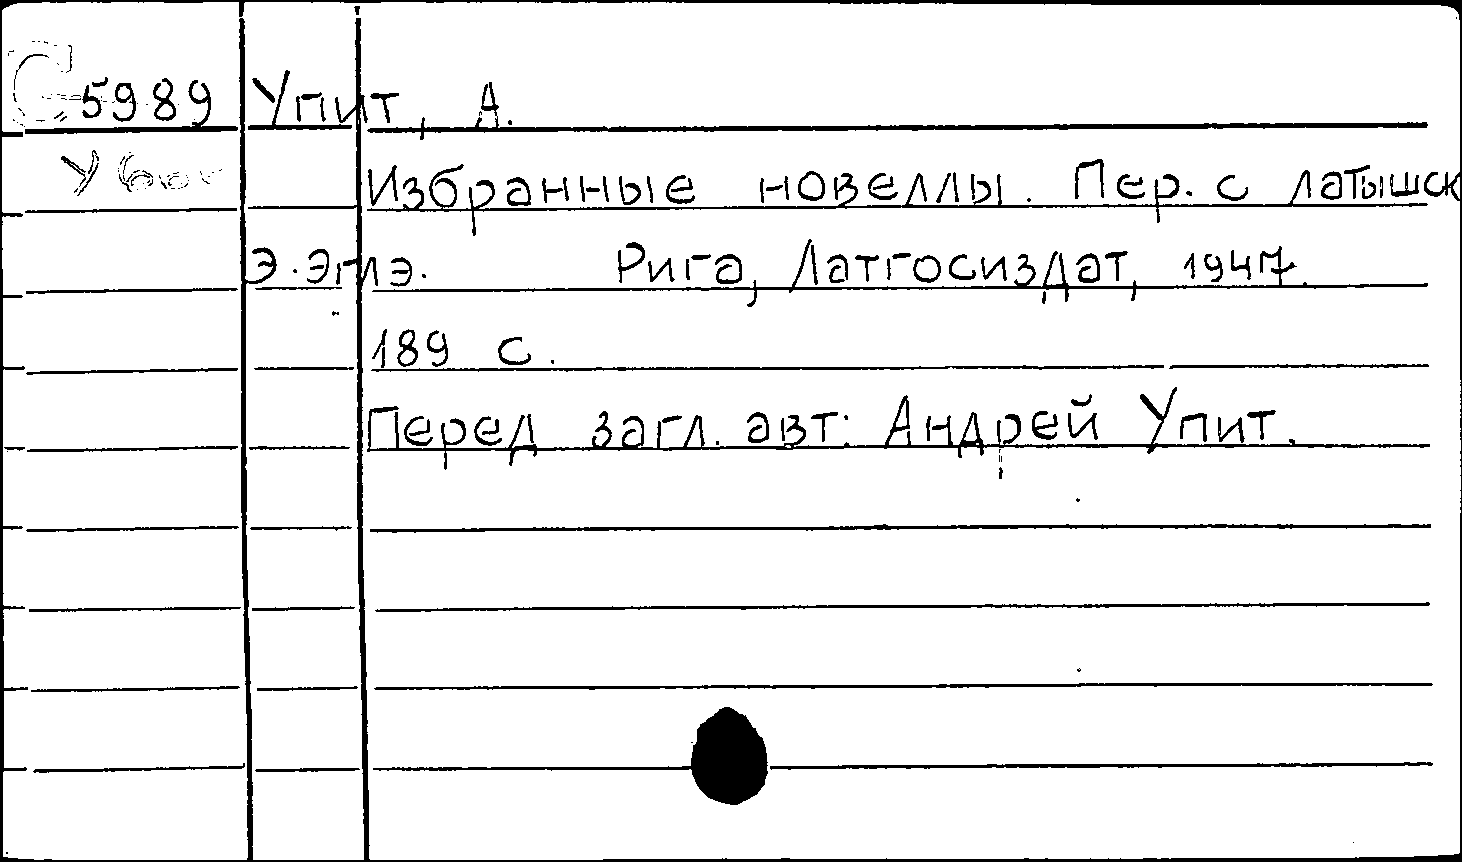 С 5989 Упит, А.
Избранные новеллы. Пер. с латышск
Э. Эглэ. Рига, Латгосиздат, 1947.
189 с.
Перед загл. авт: Андрей Упит.